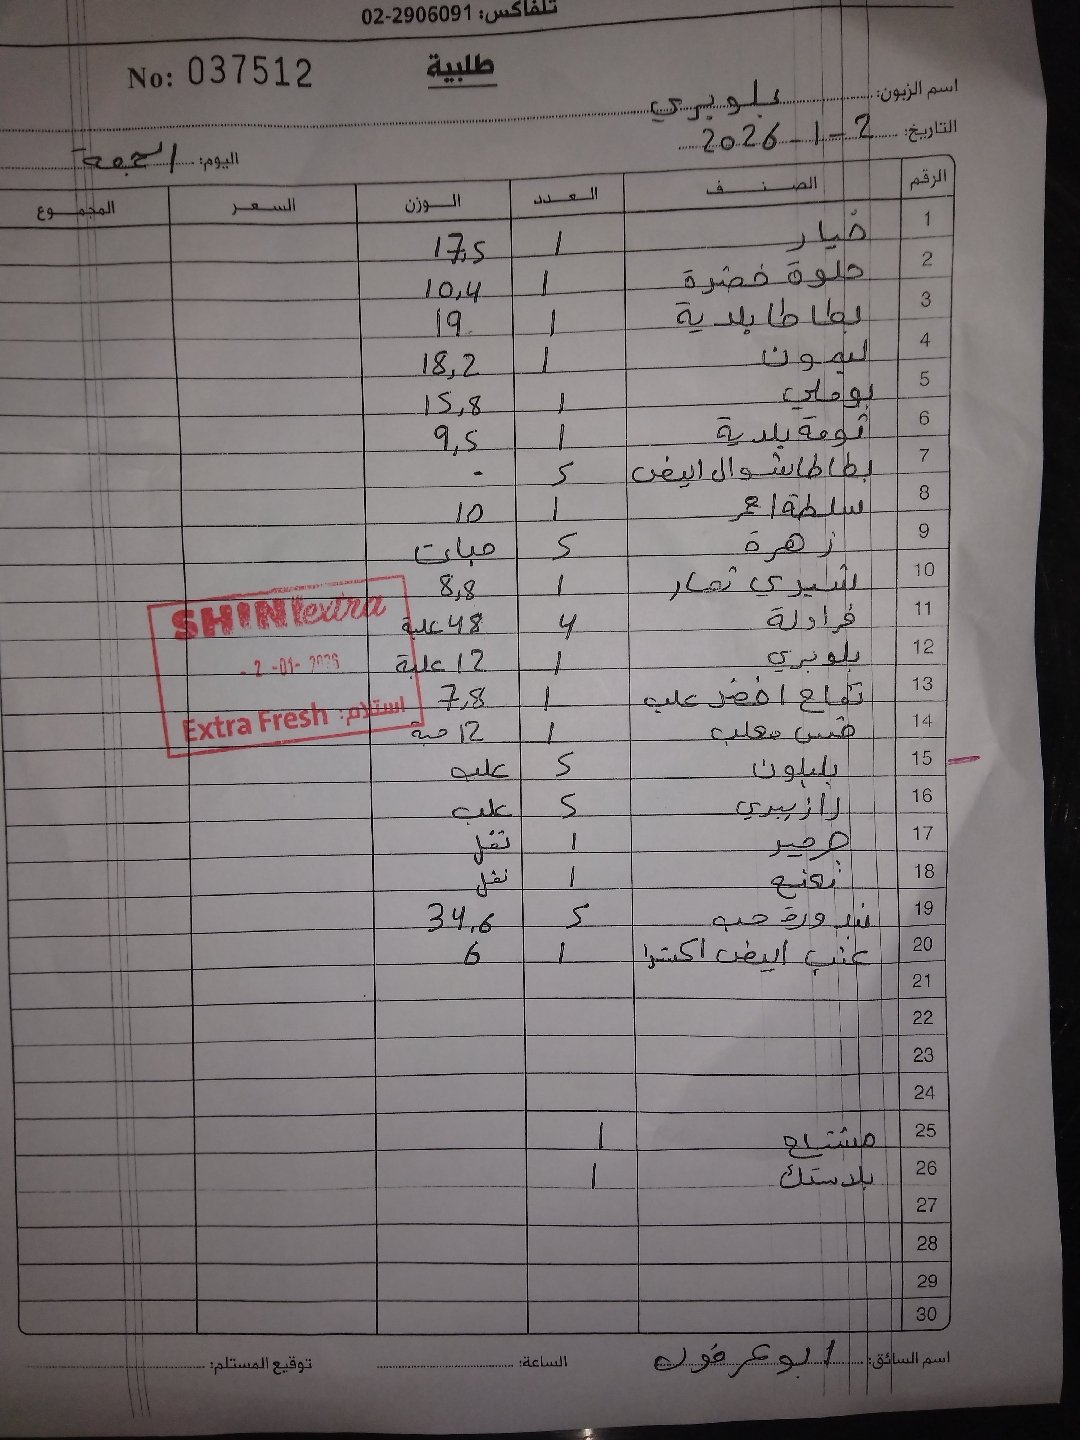 تلفاكس: 02-2906091
طلبية
No: 037512
اسم الزبون: بلوبري
التاريخ: 2-1-2026
اليوم: الجمعة
الرقم الصنف العدد الوزن السعر المجموع
1 خيار 1 17,5
2 حلوة خضرة 1 10,4
3 بطاطا بلدية 1 19
4 ليمون 1 18,2
5 بوملي 1 15,8
6 ثومة بلدية 1 9,5
7 بطاطا شوال ابيض 5 -
8 سلطة احمر 1 10
9 زهرة 5 حبات
10 شيري تمار 1 8,8
11 فراولة 4 48 علبة
12 بلوبري 1 12 علبة
13 تفاح اخضر علب 1 7,8
14 خس معلب 1 12 حبة
15 بلبلون 5 علبه
16 رازبيري 5 علب
17 جرجير 1 نفل
18 نعنع 1 نفل
19 بندورة حبه 5 34,6
20 عنب ابيض اكسترا 1 6
21
22
23
24
25 مشتاح 1
26 بلاستك 1
27
28
29
30
SHINI extra
- 2 -01- 2026
استلام: Extra Fresh
اسم السائق: ابو عرقوب
الساعة:
توقيع المستلم: